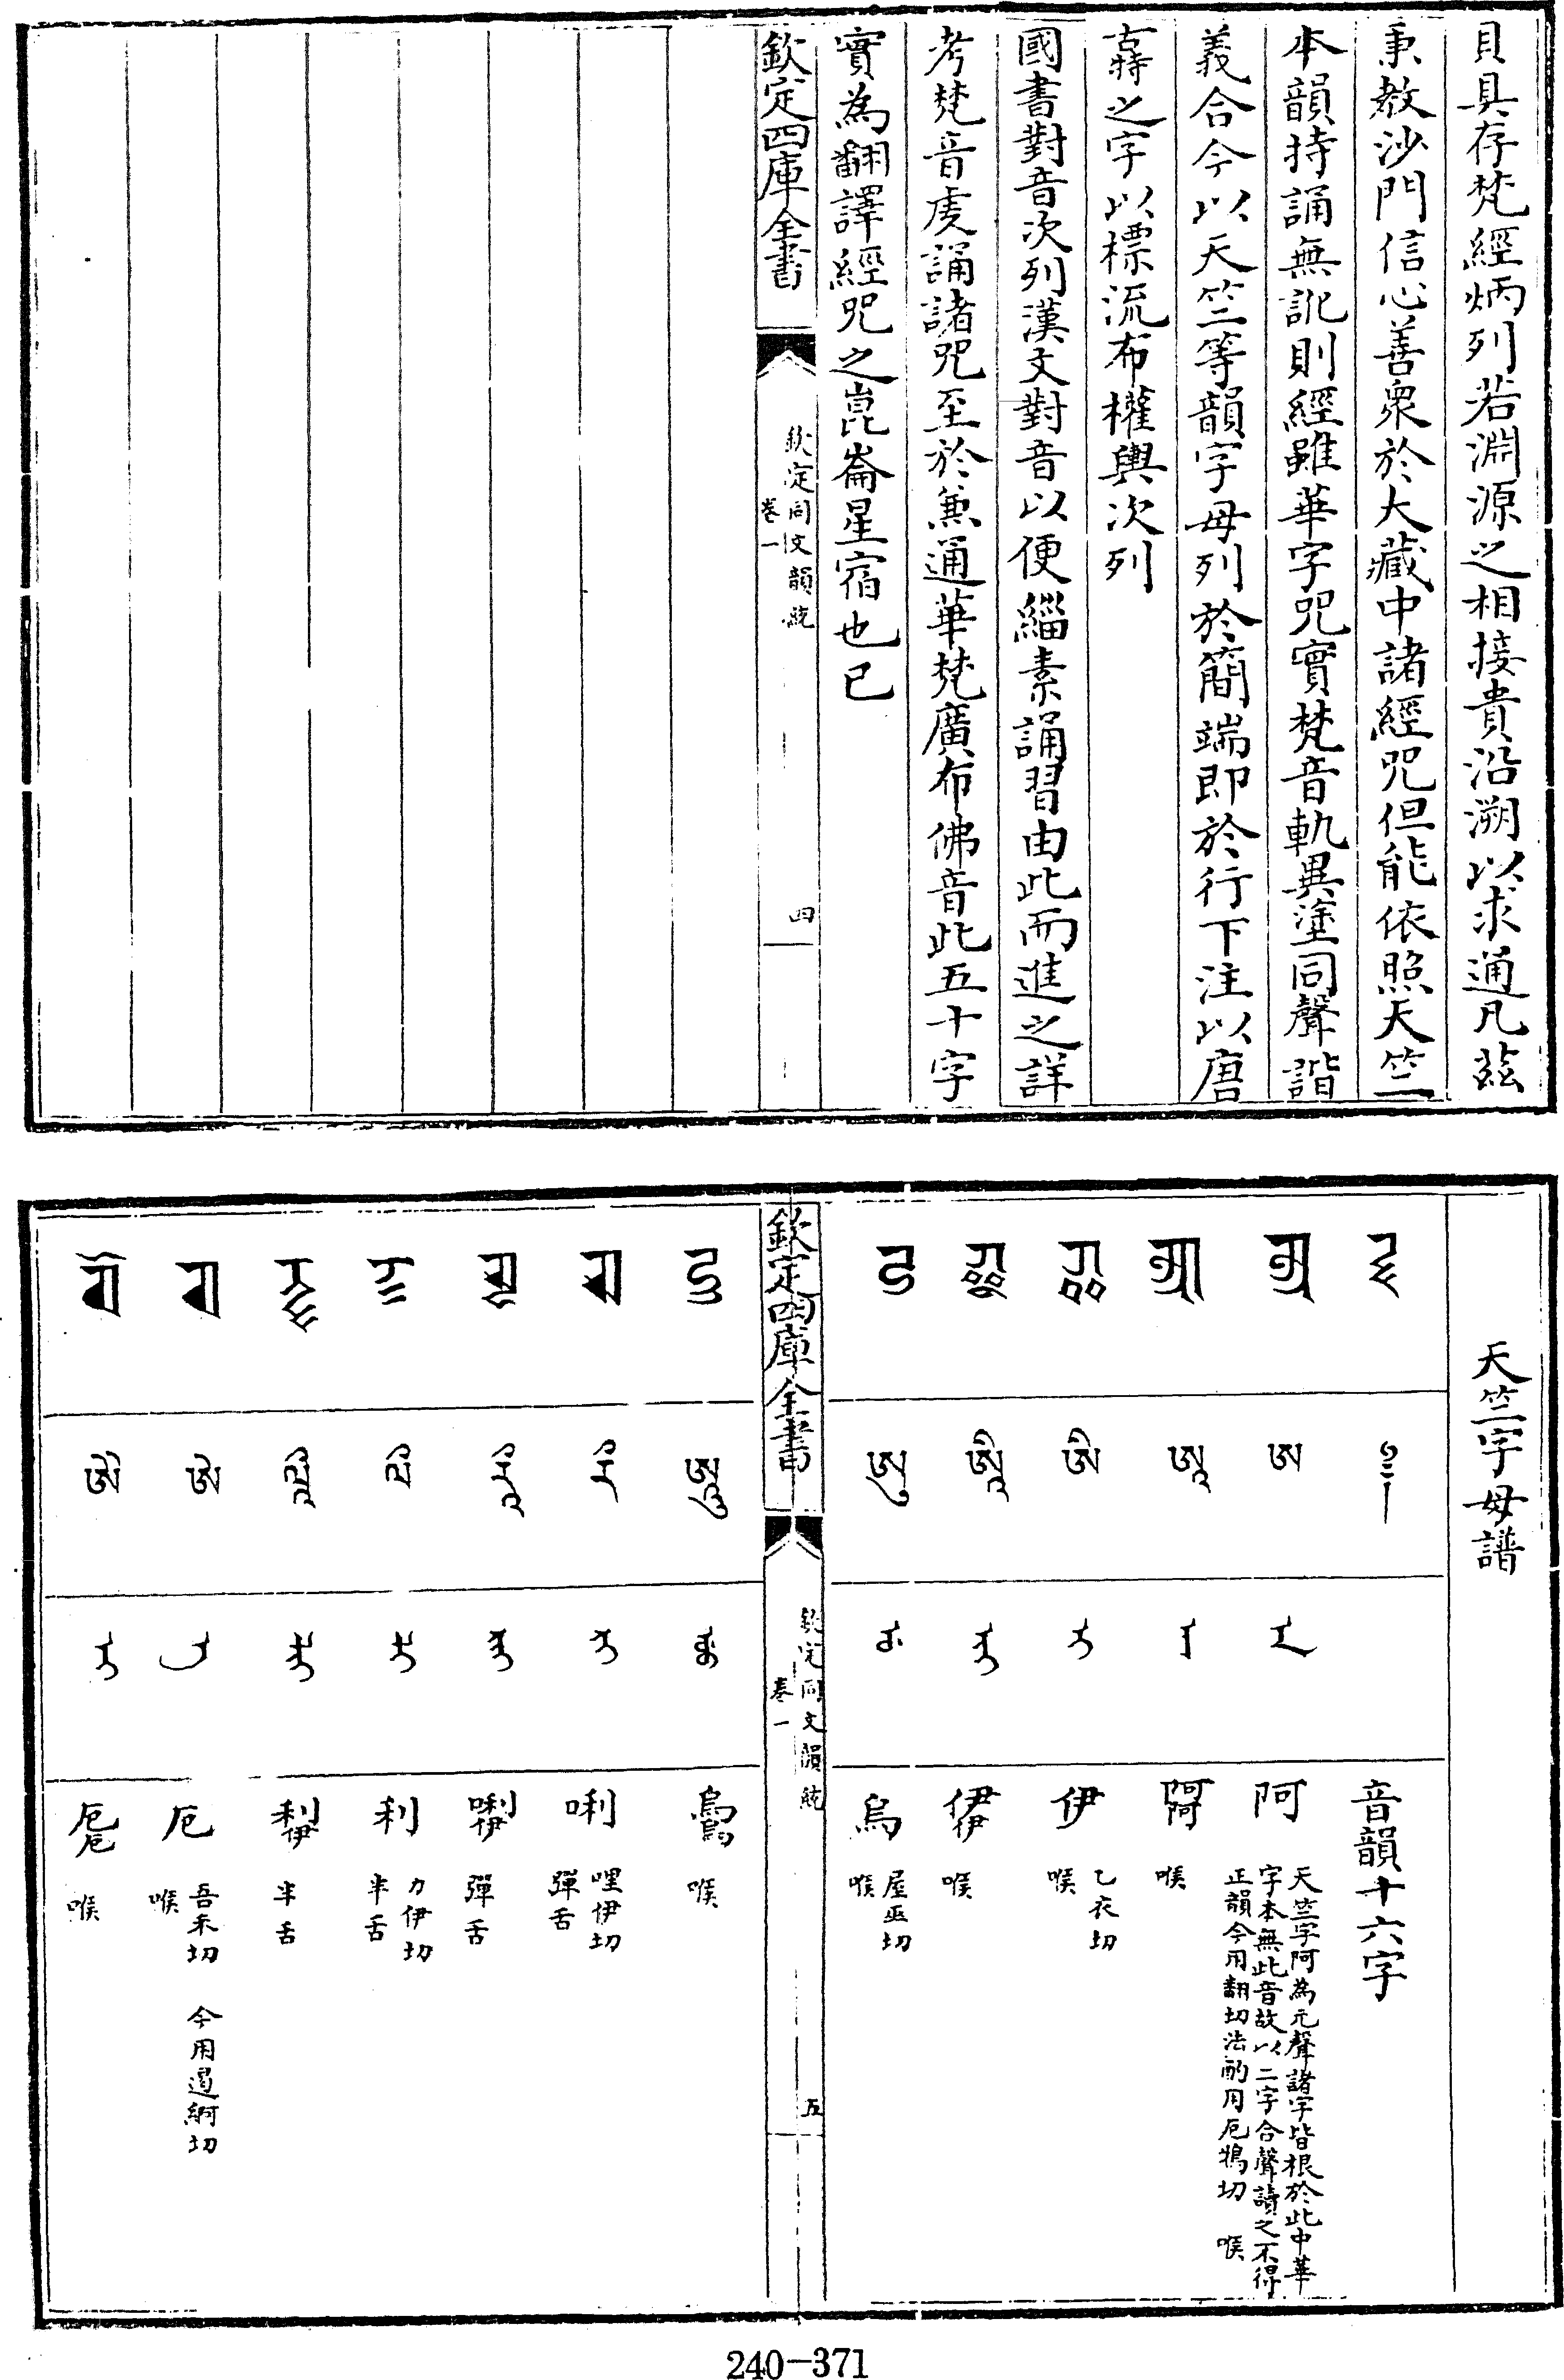 貝具存梵經炳列若淵源之相接貴沿溯以求通凡茲
秉教沙門信心善衆於大藏中諸經咒但能依照天竺
本韻持誦無訛則經雖華字咒實梵音軌異塗同聲諧
義合今以天竺等韻字母列於簡端即於行下注以唐
古特之字以標流布權輿次列
國書對音次列漢文對音以便緇素誦習由此而進之詳
考梵音虔誦諸咒至於兼通華梵廣布佛音此五十字
實為翻譯經咒之崑崙星宿也已
欽定四庫全書
欽定同文韻統
卷一
四
天竺字母譜
音韻十六字
ཨ
阿 天竺字阿為元聲諸字皆根於此中華
字本無此音故以二字合聲讀之不得
正韻今用翻切法酌用厄鴉切 喉
ཨཱ
阿阿 喉
ཨི
伊 乙衣切
喉
ཨཱི
伊伊 喉
ཨུ
烏 屋巫切
喉
欽定四庫全書
欽定同文韻統
卷一
五
ཨཱུ
烏烏 喉
རྀ
唎 哩伊切
彈舌
རཱྀ
唎伊 彈舌
ལྀ
利 力伊切
半舌
ལཱྀ
利伊 半舌
ཨེ
厄 吾禾切 今用遏婀切
喉
ཨཻ
厄厄 喉
240-371